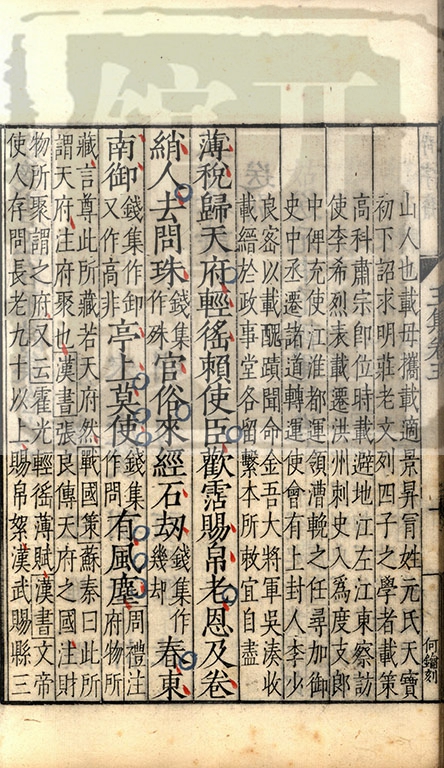 山人也載母攜載適景昇冐姓元氏天寶
初下詔求明莊老文列四子之學者載策
高科肅宗即位時載避地江左江東察訪
使李希烈表載遷洪州刺史入爲度支郎
中俾充使江淮都運領漕輓之任尋加御
史中丞遷諸道轉運使會有上封人李少
良密以載醜蹟聞命金吾大將軍吳湊收
載縉於政事堂各留繫本所敕宜自盡
薄稅歸天府輕徭賴使臣歡霑賜帛老恩及卷
綃人去問珠錢集作殊官俗來經石刼錢集作幾却春東
南御錢集作卸又作高非亭上莫使錢集作問有風塵周禮注府物所
藏言尊此所藏若天府然戰國策蘇秦曰此所
謂天府注府聚也漢書張良傳天府之國注財
物所聚謂之府又云霍光輕徭薄賦漢書文帝
使人存問長老九十以上賜帛絮漢武賜縣三
何鑰刻